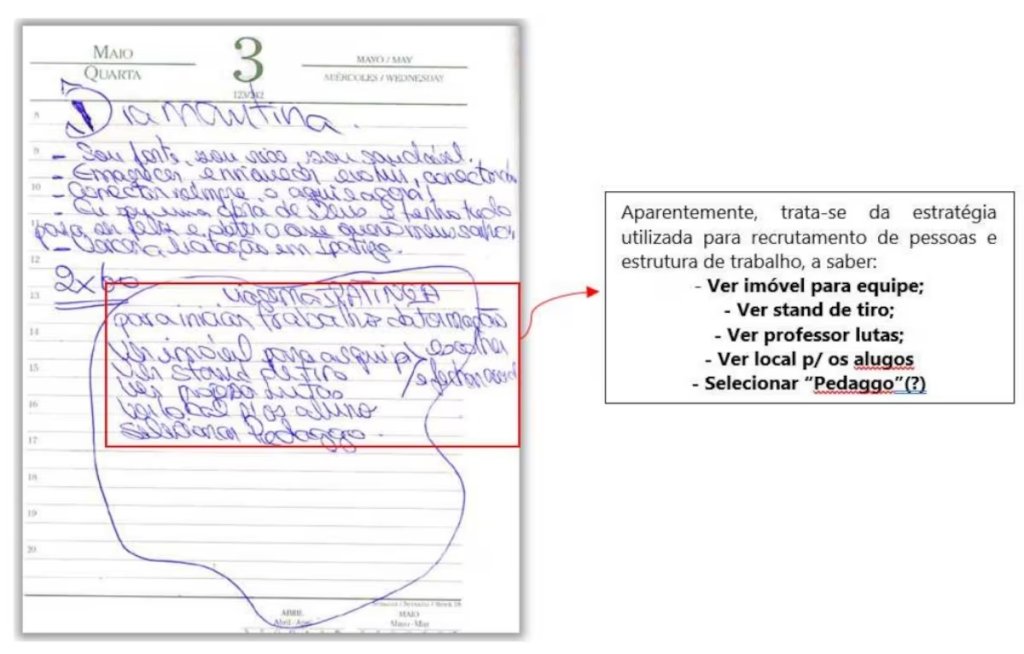 MAIO
QUARTA
3
123/242
MAYO / MAY
MIÉRCOLES / WEDNESDAY
Diamantina.
8
9
- Sou forte, sou rico, sou saudável.
- Emagrecer enriquecer evoluir, conectando
10
- Conectar sempre o aqui e agora!
- Eu sou uma obra de Deus e tenho tudo
11
para ser feliz e poder o que quero meus sonhos
- Licitação em Ipatinga.
12
2x60
13
viagem a IPATINGA
para iniciar trabalho da formação
14
ver imóvel para a equipe escolher
15
ver stand de tiro e fechar
ver profsso lutas
16
ver local p/ os aluno
selecionar Pedaggo.
17
18
19
20
ABRIL
Abril - April
MAIO
Mayo - May
Aparentemente, trata-se da estratégia
utilizada para recrutamento de pessoas e
estrutura de trabalho, a saber:
- Ver imóvel para equipe;
- Ver stand de tiro;
- Ver professor lutas;
- Ver local p/ os alugos
- Selecionar “Pedaggo”(?)